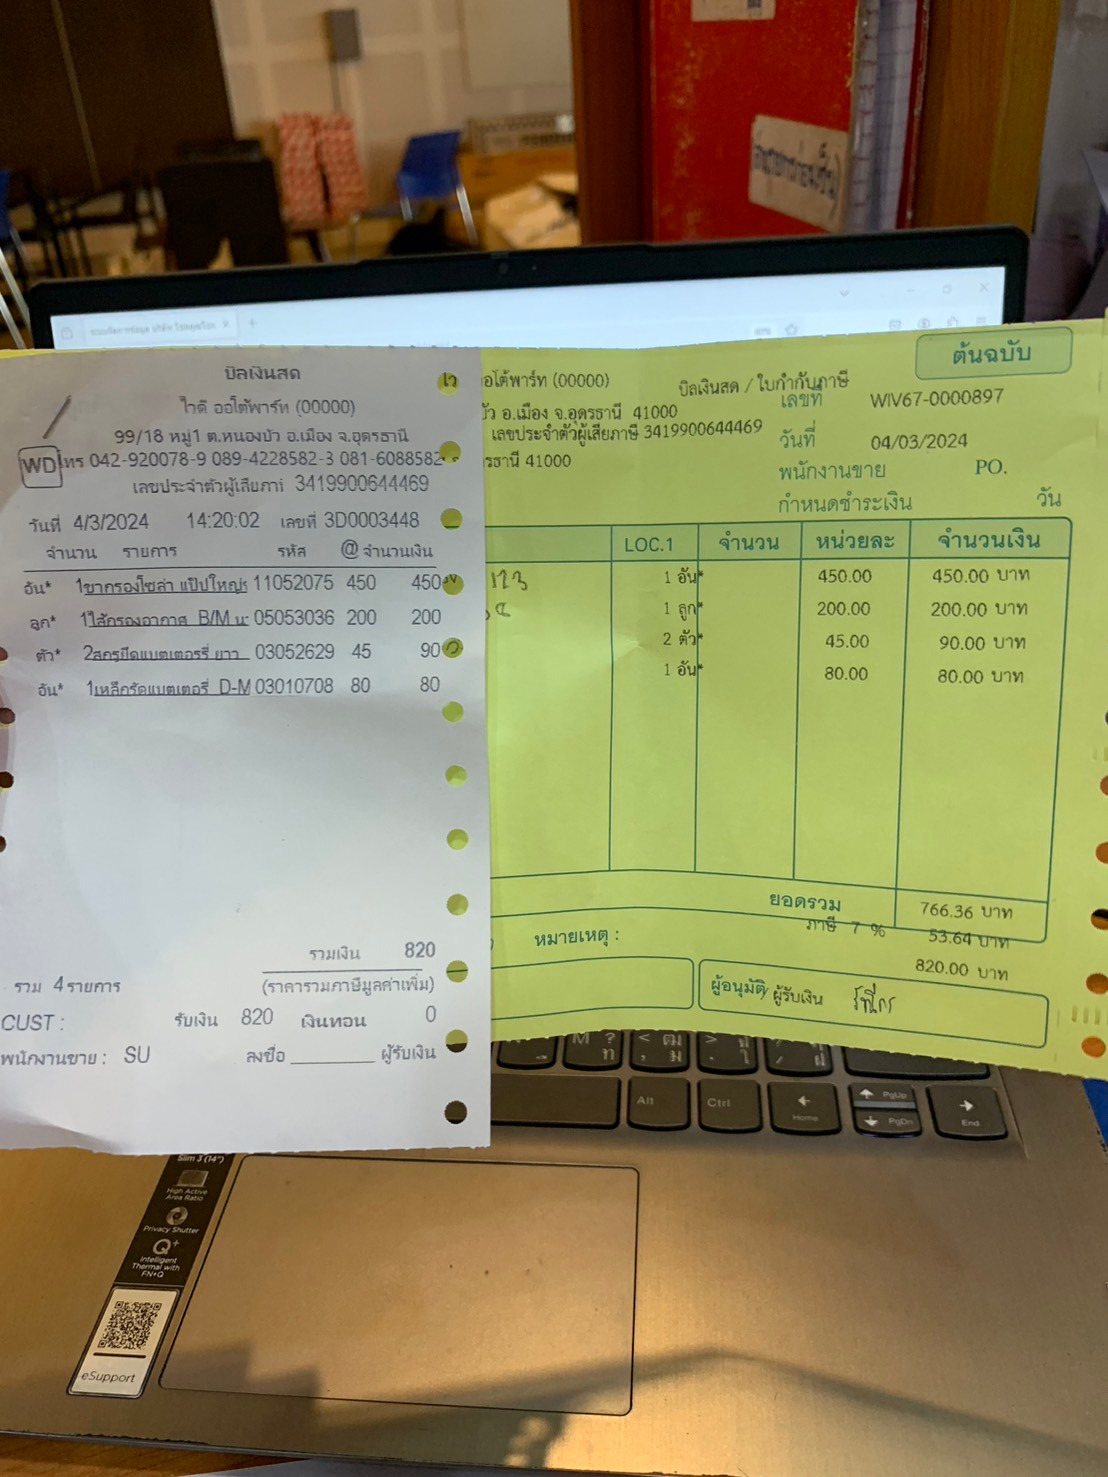 บิลเงินสด
ไวดี ออโต้พาร์ท (00000)
99/18 หมู่1 ต.หนองบัว อ.เมือง จ.อุดรธานี
WD
โทร 042-920078-9 089-4228582-3 081-6088582
เลขประจำตัวผู้เสียภาษี 3419900644469
วันที่ 4/3/2024 14:20:02 เลขที่ 3D0003448
จำนวน รายการ รหัส @ จำนวนเงิน
อัน* 1 ขากรองโซล่า แป๊ปใหญ่ 11052075 450 450
ลูก* 1 ไส้กรองอากาศ B/M 05053036 200 200
ตัว* 2 สกรูยึดแบตเตอร์รี่ ยาว 03052629 45 90
อัน* 1 เหล็กรัดแบตเตอรี่ D-M 03010708 80 80
รวมเงิน 820
รวม 4 รายการ (ราคารวมภาษีมูลค่าเพิ่ม)
CUST : รับเงิน 820 เงินทอน 0
พนักงานขาย : SU ลงชื่อ ________ ผู้รับเงิน
ต้นฉบับ
ออโต้พาร์ท (00000) บิลเงินสด / ใบกำกับภาษี
เลขที่ WIV67-0000897
บัว อ.เมือง จ.อุดรธานี 41000
เลขประจำตัวผู้เสียภาษี 3419900644469
วันที่ 04/03/2024
ดรธานี 41000
พนักงานขาย PO.
กำหนดชำระเงิน วัน
LOC.1 จำนวน หน่วยละ จำนวนเงิน
123 1 อัน* 450.00 450.00 บาท
1 ลูก* 200.00 200.00 บาท
2 ตัว* 45.00 90.00 บาท
1 อัน* 80.00 80.00 บาท
ยอดรวม 766.36 บาท
ภาษี 7 % 53.64 บาท
หมายเหตุ :
820.00 บาท
ผู้อนุมัติ/ผู้รับเงิน
Alt Ctrl Home PgUp PgDn End
Slim 3 (14")
High Active Area Ratio
Privacy Shutter
Q+
Intelligent Thermal with FN+Q
eSupport